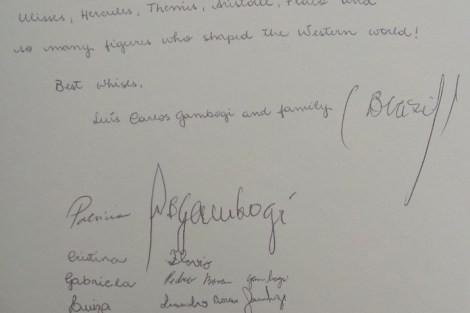 Ulisses, Hercules, Themis, Aristotle, Plato and
so many figures who shaped the Western world!
Best whises,
Luís Carlos Gambogi and family (Brazil)
Patrícia Gambogi
Cristina Flavio
Gabriela Pedro Gambogi
Luiza Leandro Gambogi